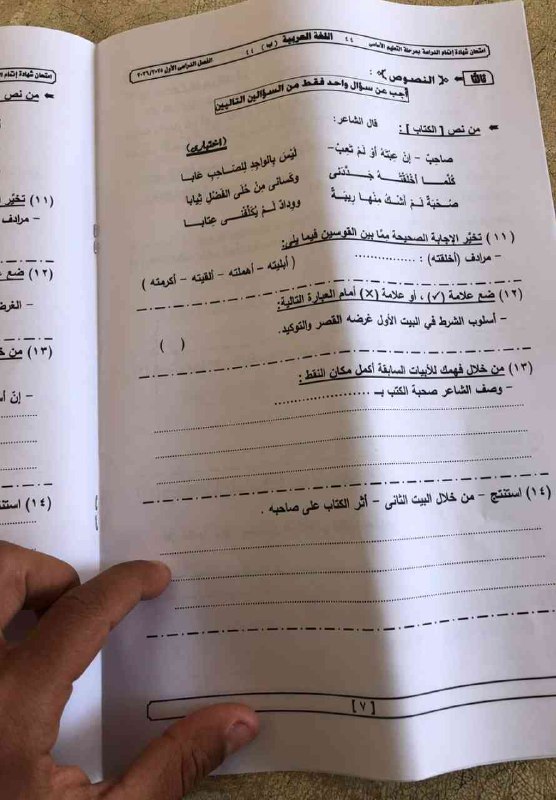 امتحان شهادة إتمام الدراسة بمرحلة التعليم الأساسى ٤٤ اللغة العربية (ب) ٤٤ الفصل الدراسى الأول ٢٠٢٦/٢٠٢٥
ثالثًا « النصوص » :
أجب عن سؤال واحد فقط من السؤالين التاليين
من نص [ الكتاب ] : (اختيارى)
قال الشاعر :
صاحِبٌ - إنْ عِبْتَهُ أوْ لَمْ تَعِبْ - لَيْسَ بِالواجِدِ لِلصاحِبِ عَابا
كُلَّما أخْلَقْتُهُ جَدَّدَنى وَكَسانى مِنْ حُلَى الفَضْلِ ثِيابا
صُحْبَةٌ لَمْ أَشْكُ مِنها رِيبَةً وَوِدادٌ لَمْ يُكَلِّفْنى عِتابا
(١١) تخيَّر الإجابة الصحيحة ممَّا بين القوسين فيما يلى:
- مرادف (أخلقته) : .................. ( أبليته - أهملته - ألقيته - أكرمته )
(١٢) ضع علامة (✓) ، أو علامة (X) أمام العبارة التالية:
- أسلوب الشرط في البيت الأول غرضه القصر والتوكيد. ( )
(١٣) من خلال فهمك للأبيات السابقة أكمل مكان النقط :
- وصف الشاعر صحبة الكتب بـ ........................
(١٤) استنتج - من خلال البيت الثانى - أثر الكتاب على صاحبه .
[ ٧ ]
من نص
(١١) تخيَّر
- مرادف
(١٢) ضع
- الغرض
(١٣) من
(١٤) استنتج